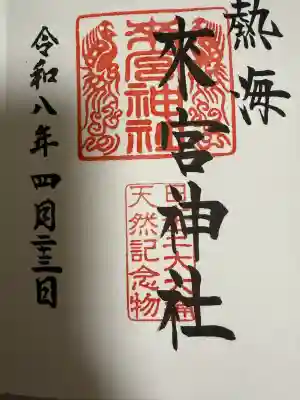 熱海
來宮神社
令和八年四月二十三日
來宮神社
天然記念物